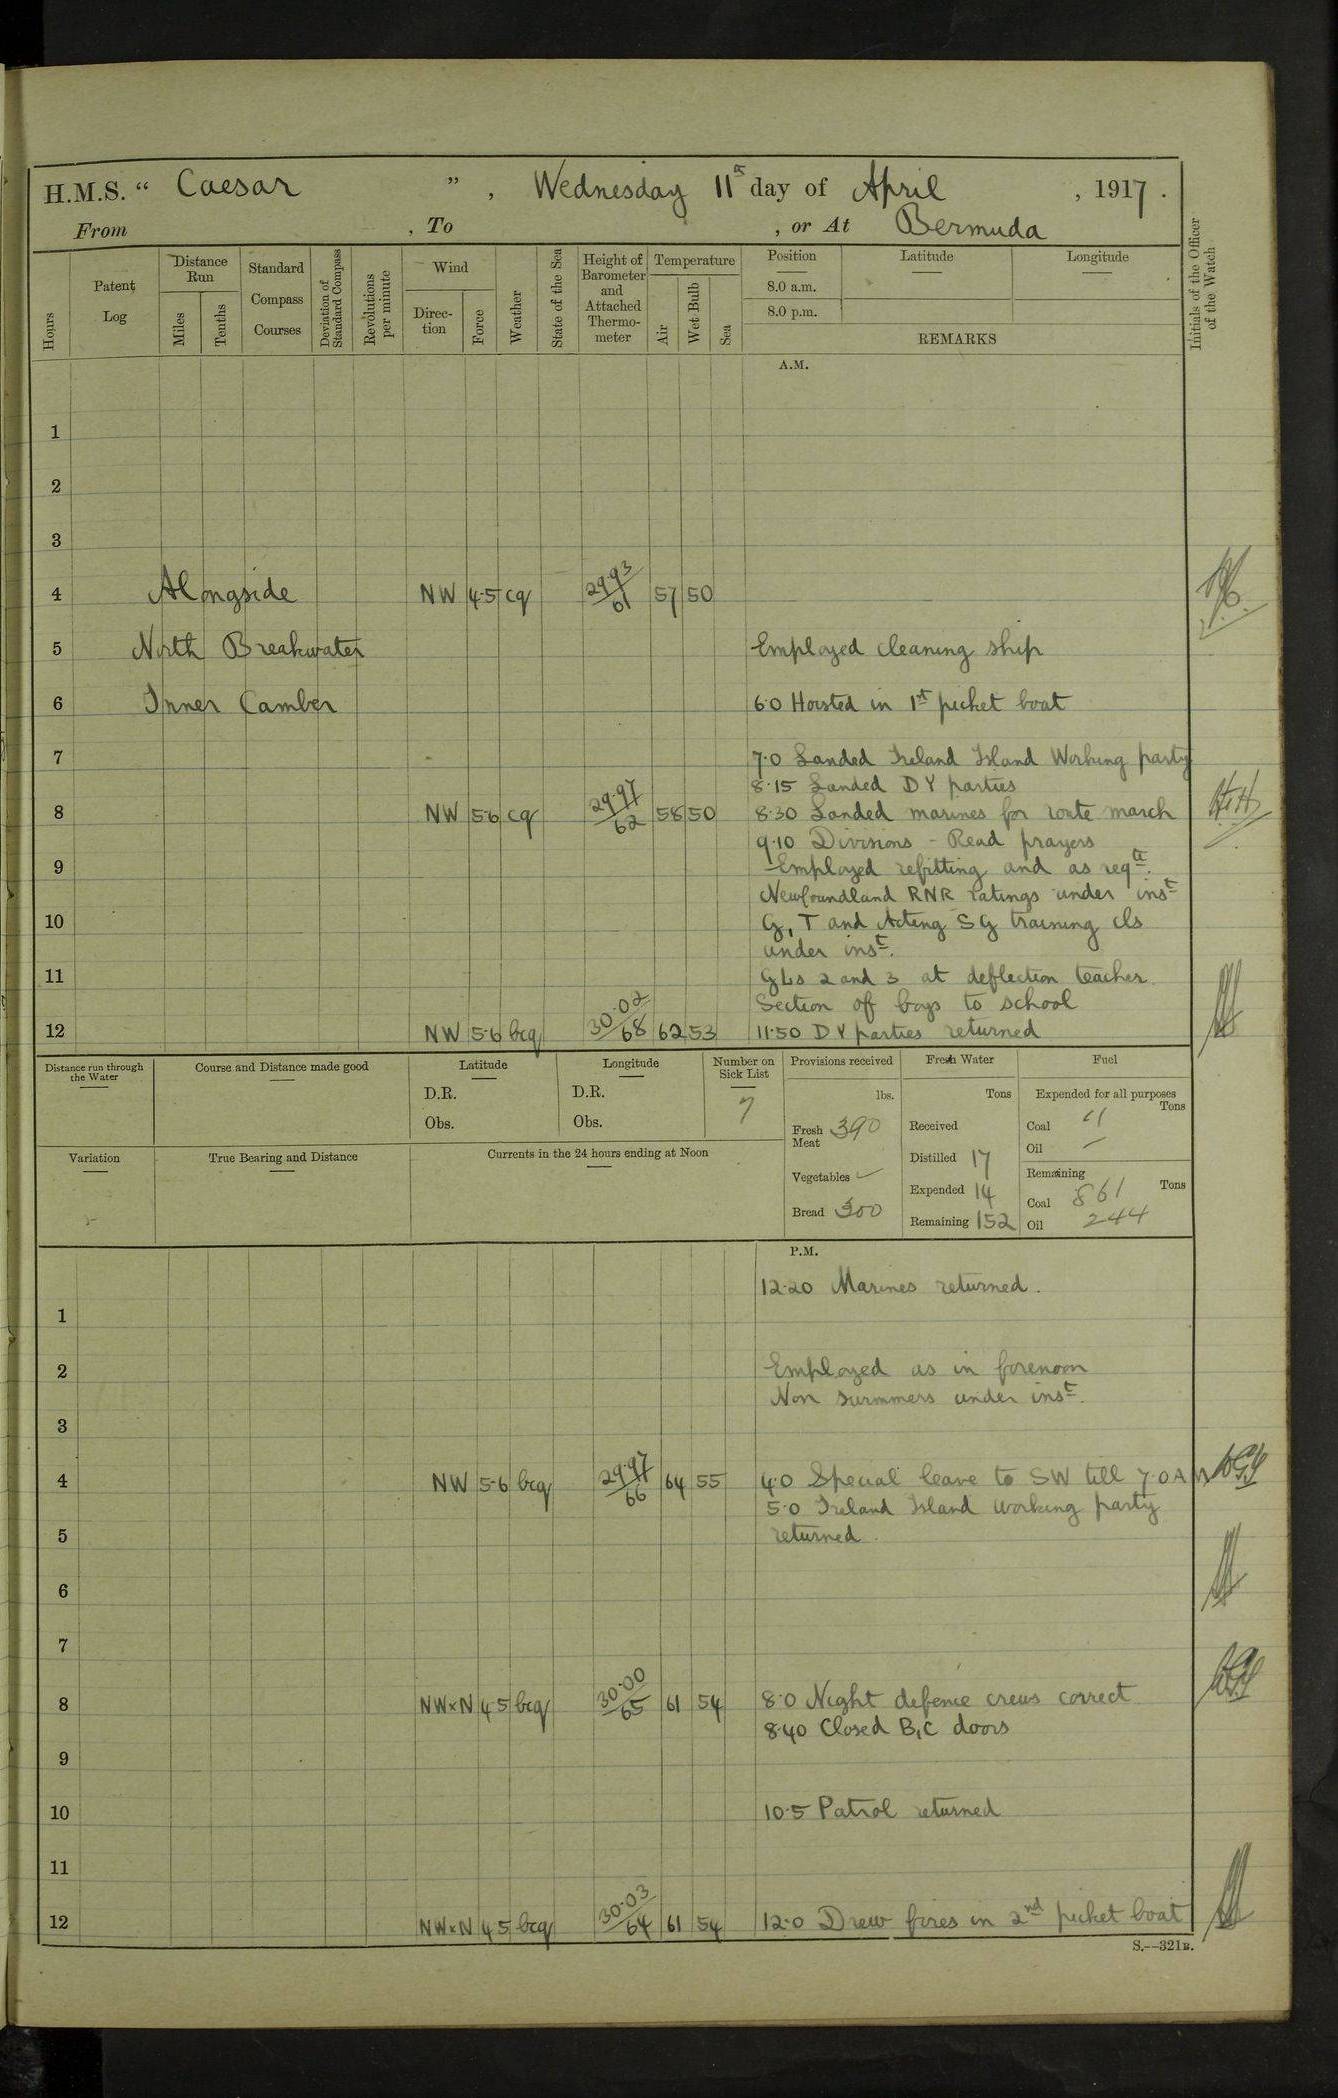 H.M.S. " Caesar " , Wednesday 11th day of April , 1917 .
From , To , or At Bermuda
Hours Patent Log Distance Run Miles Tenths Standard Compass Courses Deviation of Standard Compass Revolutions per minute Wind Direc-tion Force Weather State of the Sea Height of Barometer and Attached Thermo-meter Temperature Air Wet Bulb Sea Position 8.0 a.m. 8.0 p.m. Latitude Longitude REMARKS Initials of the Officer of the Watch
A.M.
1
2
3
4 Alongside NW 4·5 cq 29·93/61 57 50
5 North Breakwater Employed cleaning ship
6 Inner Camber 6·0 Hoisted in 1st picket boat
7 7·0 Landed Ireland Island Working party
8·15 Landed DY parties
8 NW 5·6 cq 29·97/62 58 50 8·30 Landed marines for route march
9·10 Divisions - Read prayers
9 Employed refitting and as reqte.
Newfoundland RNR ratings under inst
10 G, T and Acting SG training cls
under inst.
11 GLs 2 and 3 at deflection teacher
Section of boys to school
12 NW 5·6 bcq 30·02/68 62 53 11·50 DY parties returned
Distance run through the Water Course and Distance made good Latitude D.R. Obs. Longitude D.R. Obs. Number on Sick List 7
Provisions received lbs. Fresh Meat 390 Vegetables Bread 300
Fresh Water Tons Received Distilled 17 Expended 14 Remaining 152
Fuel Expended for all purposes Tons Coal 11 Oil — Remaining Tons Coal 861 Oil 244
Variation True Bearing and Distance Currents in the 24 hours ending at Noon
P.M.
12·20 Marines returned.
1
2 Employed as in forenoon
Non swimmers under inst.
3
4 NW 5·6 bcq 29·97/66 64 55 4·0 Special leave to SW till 7·0 AM
5·0 Ireland Island working party
5 returned.
6
7
8 NWxN 4·5 bcq 30·00/65 61 54 8·0 Night defence crews correct
8·40 Closed B,C doors
9
10 10·5 Patrol returned
11
12 NWxN 4·5 bcq 30·03/64 61 54 12·0 Drew fires in 2nd picket boat
S.—321B.